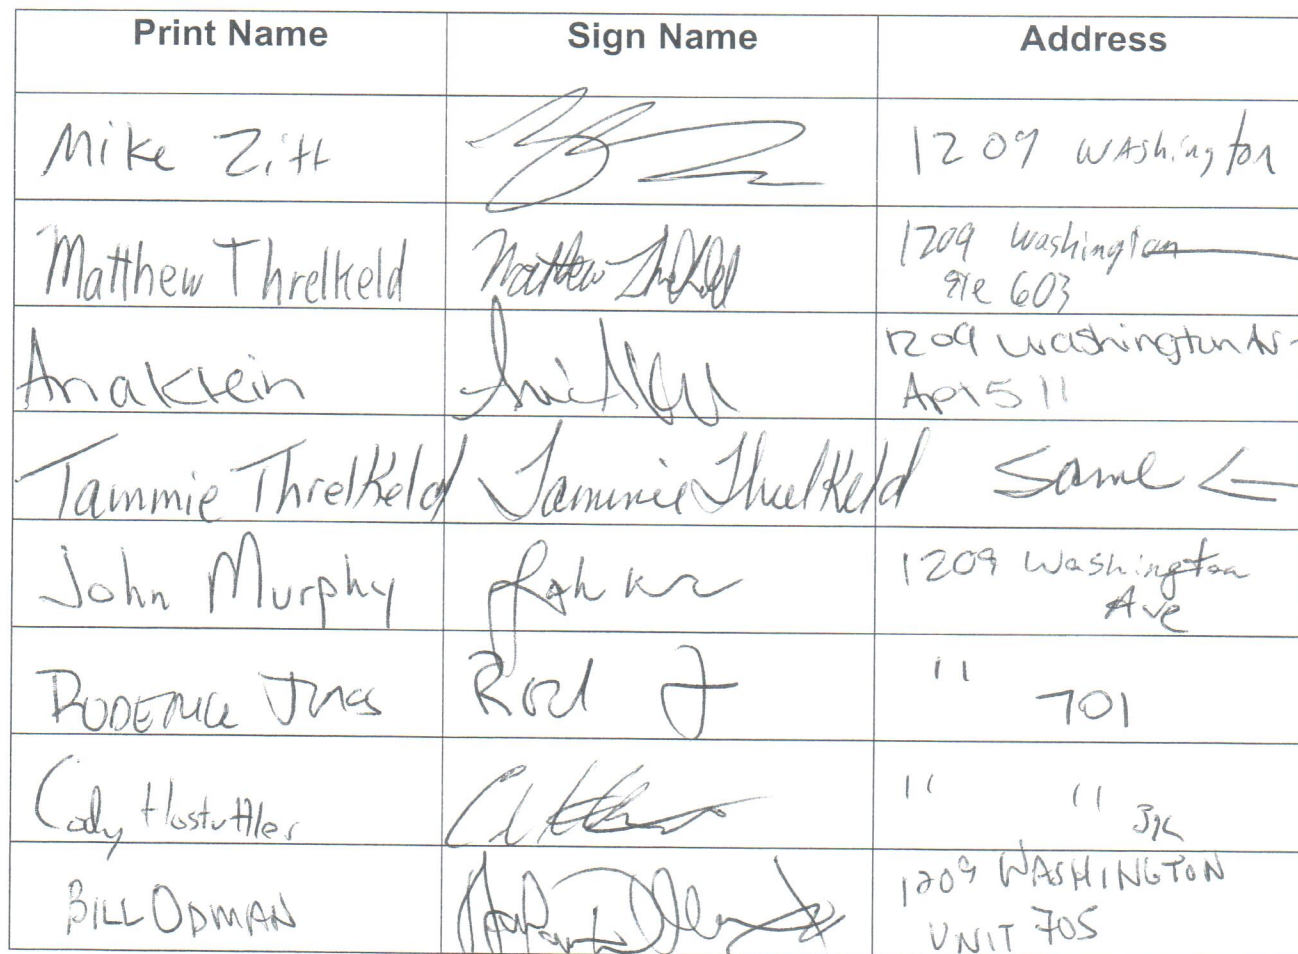 Print Name Sign Name Address
Mike Zitt 1209 Washington
Matthew Threlkeld Matthew Threlkeld 1209 Washington
Ste 603
Ana Klein 1209 Washington Av
Apt 511
Tammie Threlkeld Tammie Threlkeld Same
John Murphy John 1209 Washington
Ave
Roderick Jones Rod J " 701
Cody Hostuttler " "
BILL ODMAN 1209 WASHINGTON
UNIT 705